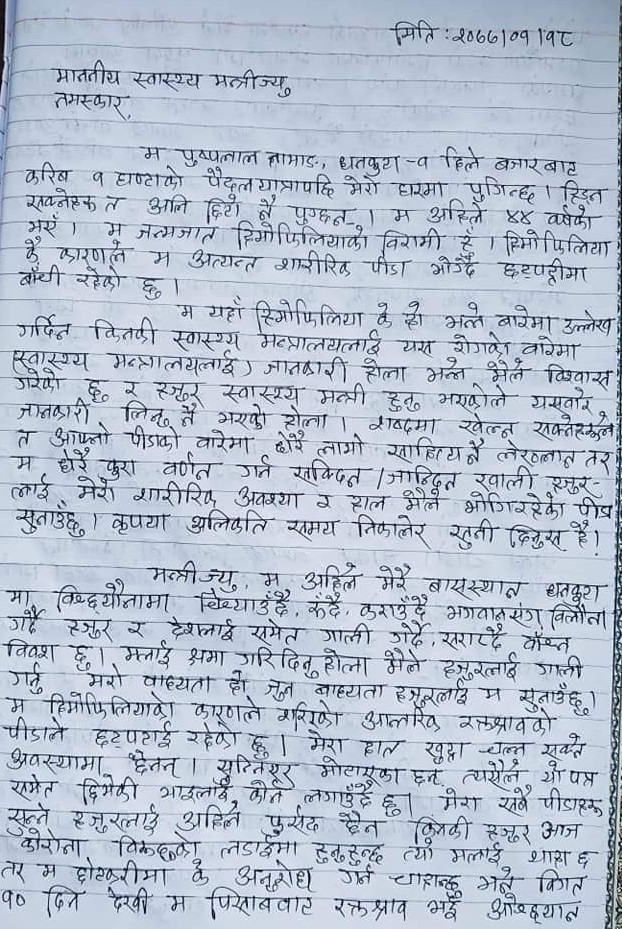 मिति : २०७७।०१।१८
माननीय स्वास्थ्य मन्त्रीज्यु
नमस्कार,
म पुष्पलाल तामाङ, धनकुटा -१ हिले बजारबाट
करिब १ घण्टाको पैदल यात्रापछि मेरो घरमा पुगिन्छ । हिड्न
सक्नेहरू त अलि छिटो नै पुग्छन् । म अहिले ४४ वर्षको
भएँ । म जन्मजात हिमोफिलियाको विरामी हुँ । हिमोफिलिया
कै कारणले म अत्यन्त शारीरिक पीडा भोग्दै छटपट्टीमा
बाँची रहेको छु ।
म यहाँ हिमोफिलिया के हो भन्ने बारेमा उल्लेख
गर्दिन किनकी स्वास्थ्य मन्त्रालयलाई यस रोगको बारेमा
(स्वास्थ्य मन्त्रालयलाई) जानकारी होला भन्ने मैले विश्वास
गरेको छु र हजुर स्वास्थ्य मन्त्री हुनु भएकोले यसबारे
जानकारी लिनु नै भएको होला । शब्दमा खेल्न सक्नेहरूले
त आफ्नो पीडाको बारेमा धेरै लामो साहित्य नै लेख्लान तर
म धेरै कुरा वर्णन गर्न सक्दिन / जान्दिन खाली हजुर-
लाई मेरो शारीरिक अवस्था र हाल मैले भोगिरहेको पीडा
सुनाउँछु । कृपया अलिकति समय निकालेर सुनी दिनुस है ।
मन्त्रीज्यु, म अहिले मेरै बासस्थान धनकुटा
मा विछ्यौनामा चिच्याउँदै, रुँदै, कराउँदै भगवानसंग विलौना
गर्दै हजुर र देशलाई समेत गाली गर्दै, सराप्दै बाँच्न
विवश छु । मलाई क्षमा गरिदिनु होला मैले हजुरलाई गाली
गर्नु मेरो वाध्यता हो जुन बाध्यता हजुरलाई म सुनाउँछु ।
म हिमोफिलियाको कारणले शरिरको आन्तरिक रक्तश्रावको
पीडाले छटपटाई रहेको छु । मेरा हात खुट्टा चल्न सक्ने
अवस्थामा छैनन् । सुन्निएर मोटाएका छन् त्यसैले यो पत्र
समेत छिमेकी भाइलाई लेख्न लगाउँदै छु । मेरा सबै पीडाहरू
सुन्ने हजुरलाई अहिले फुर्सद छैन किनकी हजुर आज
कोरोना विरूद्धको लडाईमा हुनुहुन्छ त्यो मलाई थाहा छ
तर म छोटकरीमा के अनुरोध गर्न चाहान्छु भने विगत
१० दिन देखी म पिसाबबाट रक्तश्राव भई